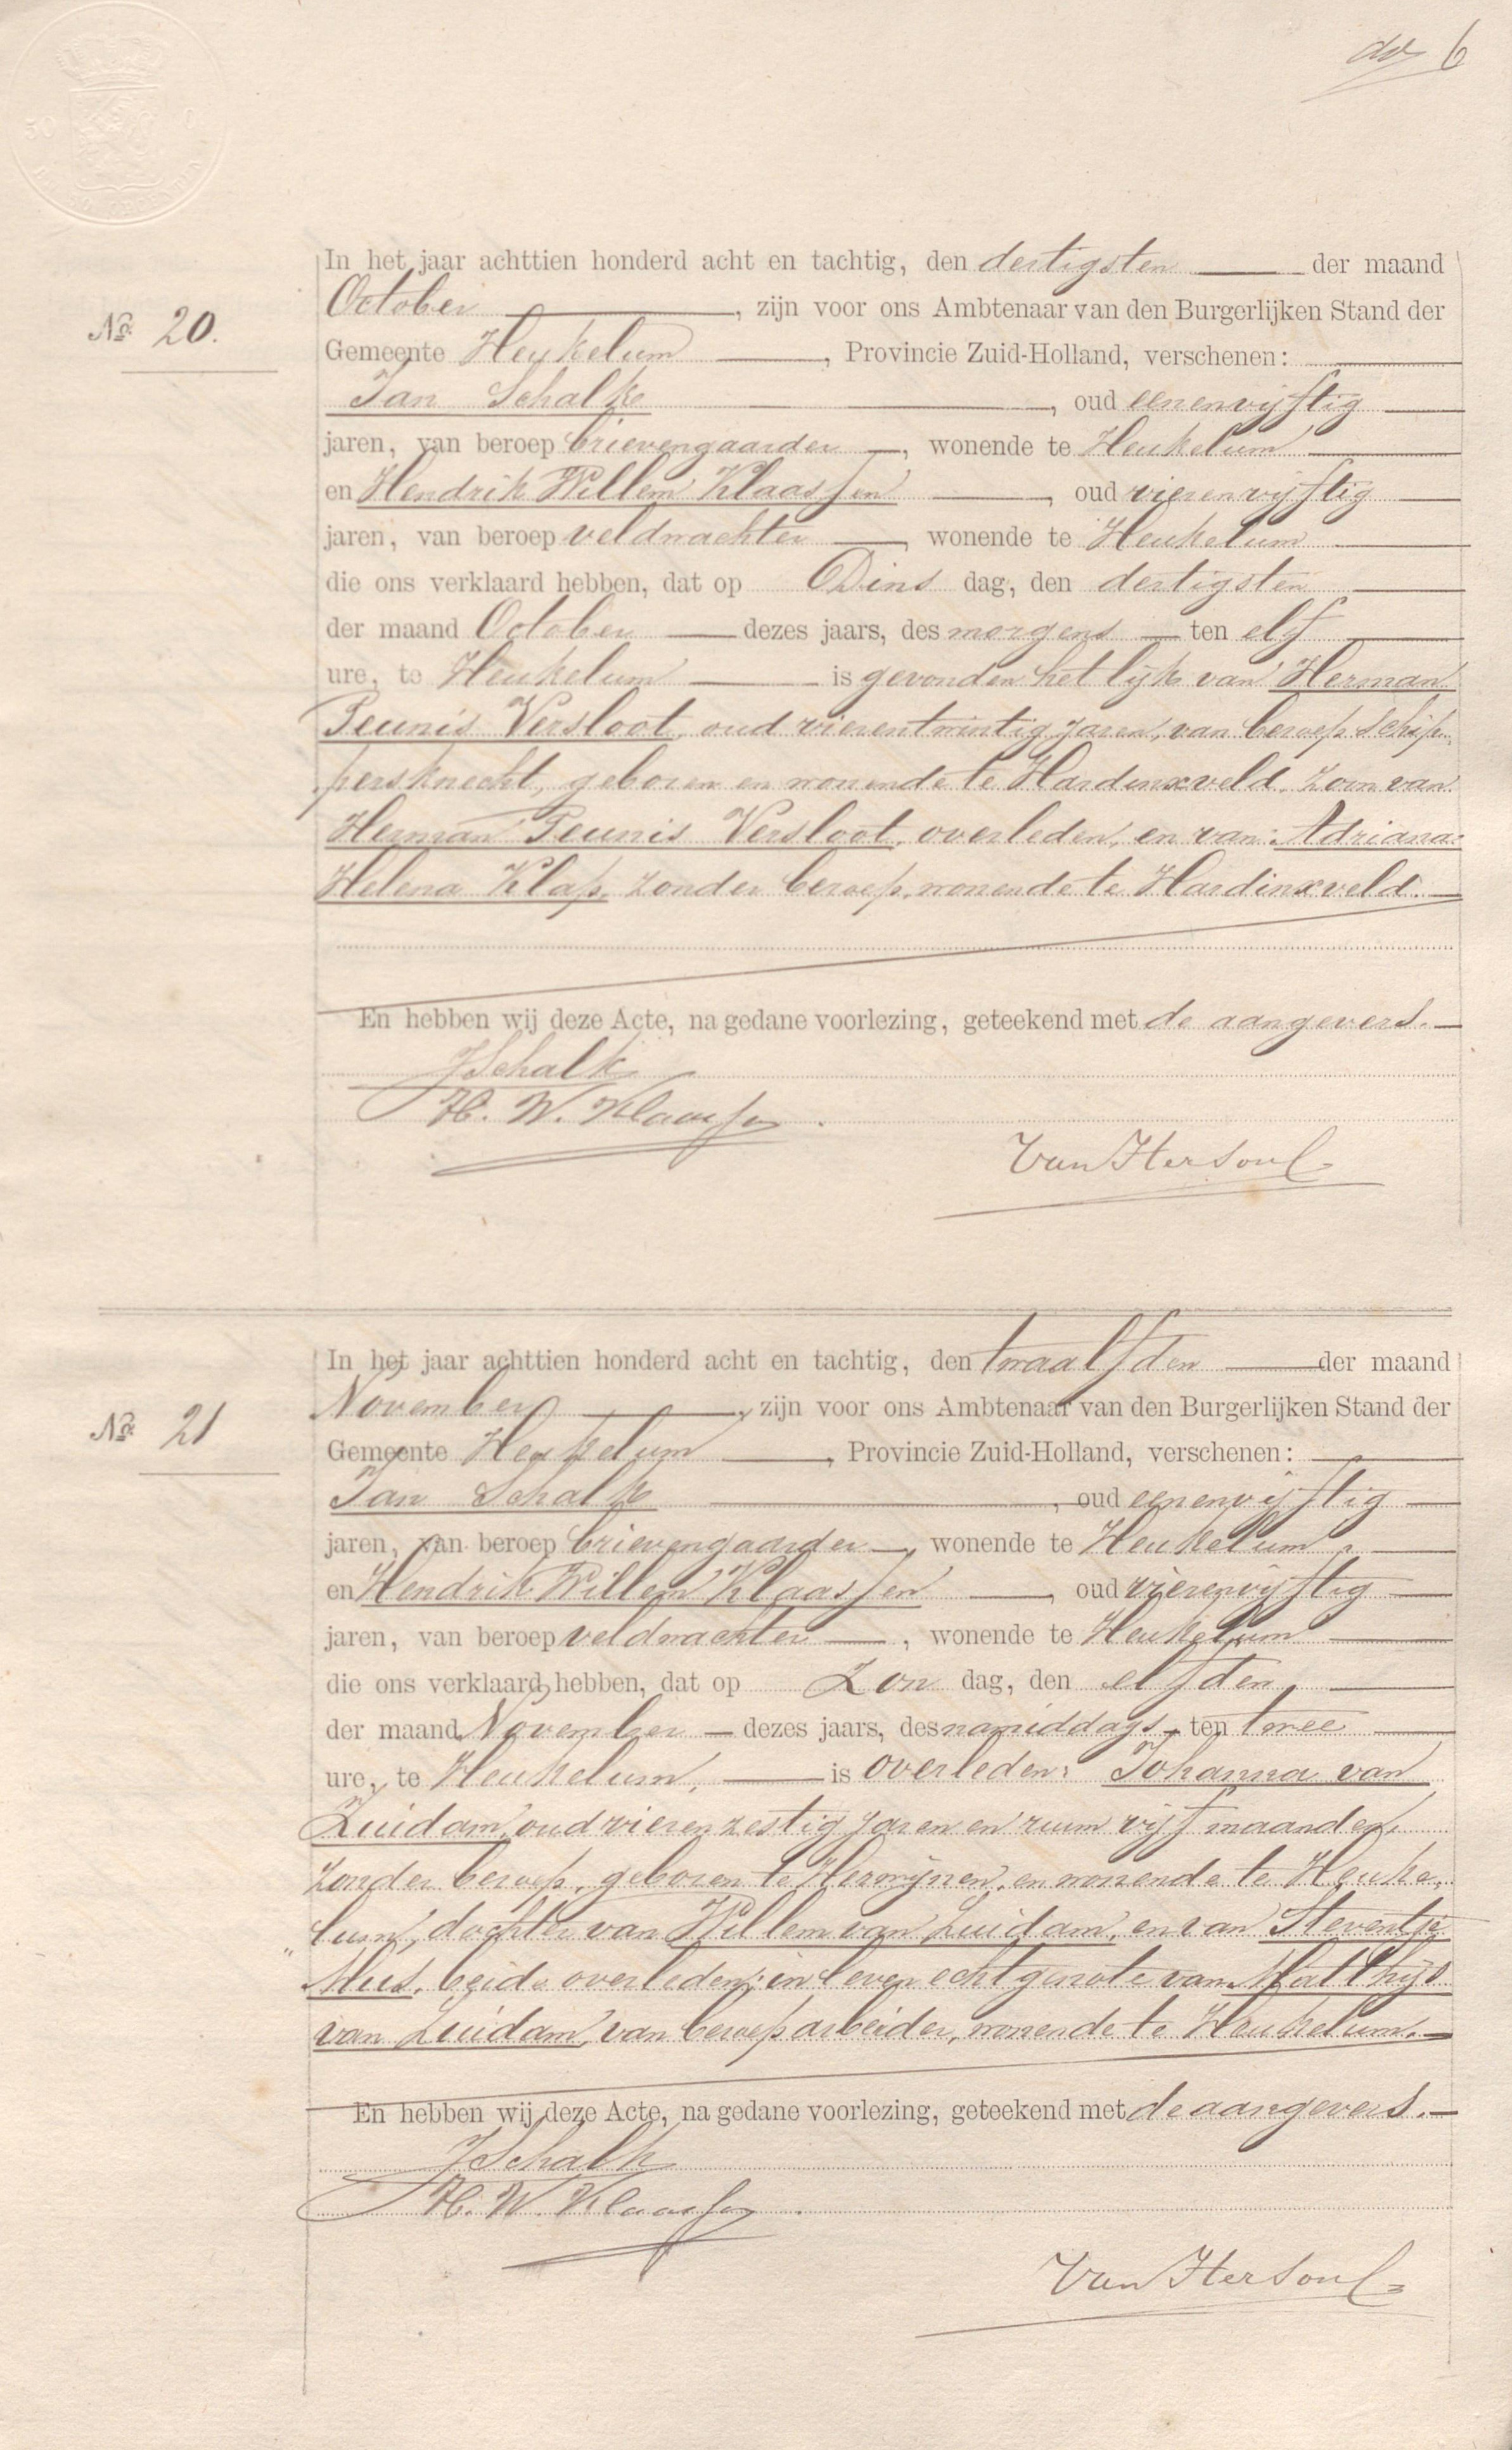 6
In het jaar achttien honderd acht en tachtig, den dertigsten der maand
October, zijn voor ons Ambtenaar van den Burgerlijken Stand der
No. 20.
Gemeente Heukelum, Provincie Zuid-Holland, verschenen:
Jan Schalk, oud eenenvijftig
jaren, van beroep brievengaarder, wonende te Heukelum
en Hendrik Willem Klaassen, oud vierenvijftig
jaren, van beroep veldwachter, wonende te Heukelum
die ons verklaard hebben, dat op Dins dag, den dertigsten
der maand October dezes jaars, des morgens ten elf
ure, te Heukelum is gevonden het lijk van Herman
Teunis Versloot, oud vierentwintig jaren, van beroep schip-
persknecht, geboren en wonende te Hardinxveld, zoon van
Herman Teunis Versloot, overleden, en van Adriana
Helena Klop, zonder beroep, wonende te Hardinxveld.
En hebben wij deze Acte, na gedane voorlezing, geteekend met de aangevers.
J Schalk
H. W. Klaassen.
In het jaar achttien honderd acht en tachtig, den twaalfden der maand
November, zijn voor ons Ambtenaar van den Burgerlijken Stand der
No. 21
Gemeente Heukelum, Provincie Zuid-Holland, verschenen:
Jan Schalk, oud eenenvijftig
jaren, van beroep brievengaarder, wonende te Heukelum
en Hendrik Willem Klaassen, oud vierenvijftig
jaren, van beroep veldwachter, wonende te Heukelum
die ons verklaard hebben, dat op Zon dag, den elfden
der maand November dezes jaars, des namiddags ten twee
ure, te Heukelum, is overleden: Johanna van
Zuidam, oud vierenzestig jaren en ruim vijf maanden,
zonder beroep, geboren te Herwijnen, en wonende te Heuke-
lum, dochter van Willem van Zuidam, en van Steventje
Mus, beide overleden; in leven echtgenote van Matthijs
van Zuidam, van beroep arbeider, wonende te Heukelum.
En hebben wij deze Acte, na gedane voorlezing, geteekend met de aangevers.
J Schalk
H. W. Klaassen.